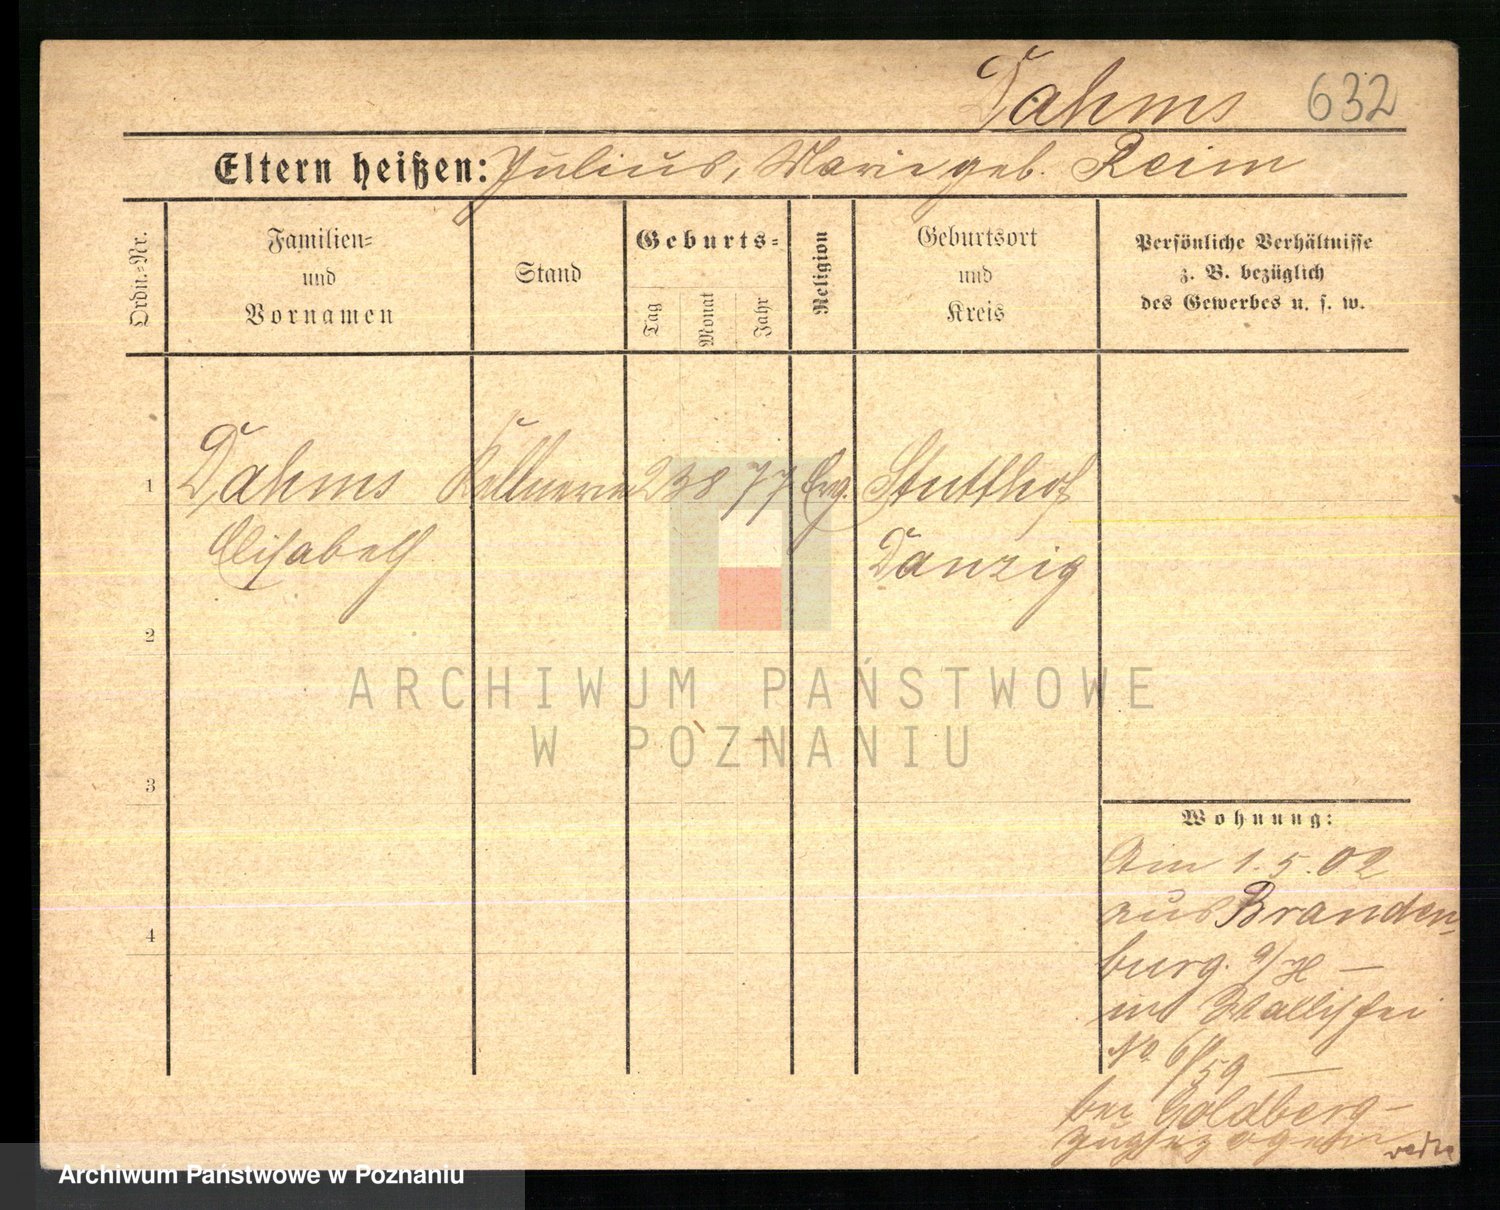 Dahms 632
Eltern heißen: Julius, Marie geb. Reim
Ordn.-Nr.
Familien-
und
Vornamen
Stand
Geburts-
Tag
Monat
Jahr
Religion
Geburtsort
und
Kreis
Persönliche Verhältnisse
z. B. bezüglich
des Gewerbes u. s. w.
1 Dahms Kellnerin 23 8 77 Evg. Stutthof
Elisabeth Danzig
2
3
4
ARCHIWUM PAŃSTWOWE
W POZNANIU
Wohnung:
Am 1.5.02
aus Branden-
burg a/H –
in Wallischei
No 6/59 –
bei Goldberg –
zugezogen
Archiwum Państwowe w Poznaniu